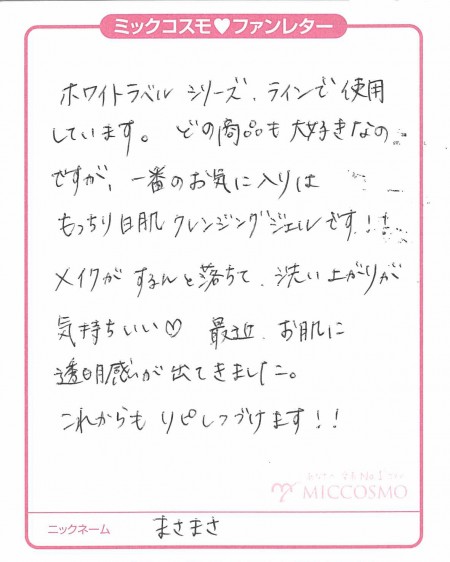 ミックコスモ♥ファンレター
ホワイトラベル シリーズ、ラインで使用
しています。どの商品も大好きなの
ですが、一番のお気に入りは
もっちり白肌クレンジングジェルです!
メイクが するんと落ちて、洗い上がりが
気持ちいい♡ 最近、お肌に
透明感が出てきました。
これからも リピしつづけます!!
あなたの、空系No.1でいたい
MICCOSMO
ニックネーム まさまさ